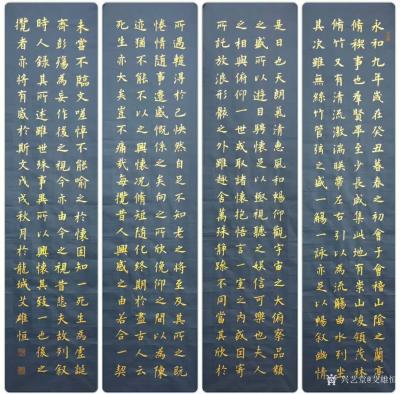 永和九年歲在癸丑暮春之初會于會稽山陰之蘭亭
脩禊事也羣賢畢至少長咸集此地有崇山峻領茂林
脩竹又有清流激湍暎帶左右引以為流觴曲水列坐
其次雖無絲竹管弦之盛一觴一詠亦足以暢叙幽情
是日也天朗氣清惠風和暢仰觀宇宙之大俯察品類
之盛所以遊目騁懷足以極視聽之娛信可樂也夫人
之相與俯仰一世或取諸懷抱悟言一室之內或因寄
所託放浪形骸之外雖趣舍萬殊靜躁不同當其欣於
所遇暫得於己怏然自足不知老之將至及其所之既
惓情隨事遷感慨係之矣向之所欣俛仰之間以為陳
迹猶不能不以之興懷況脩短隨化終期於盡古人云
死生亦大矣豈不痛哉每攬昔人興感之由若合一契
未嘗不臨文嗟悼不能喻之於懷固知一死生為虛誕
齊彭殤為妄作後之視今亦由今之視昔悲夫故列叙
時人錄其所述雖世殊事異所以興懷其致一也後之
攬者亦將有感於斯文戊戌秋月於龍城艾雄恒
兴艺堂@艾雄恒